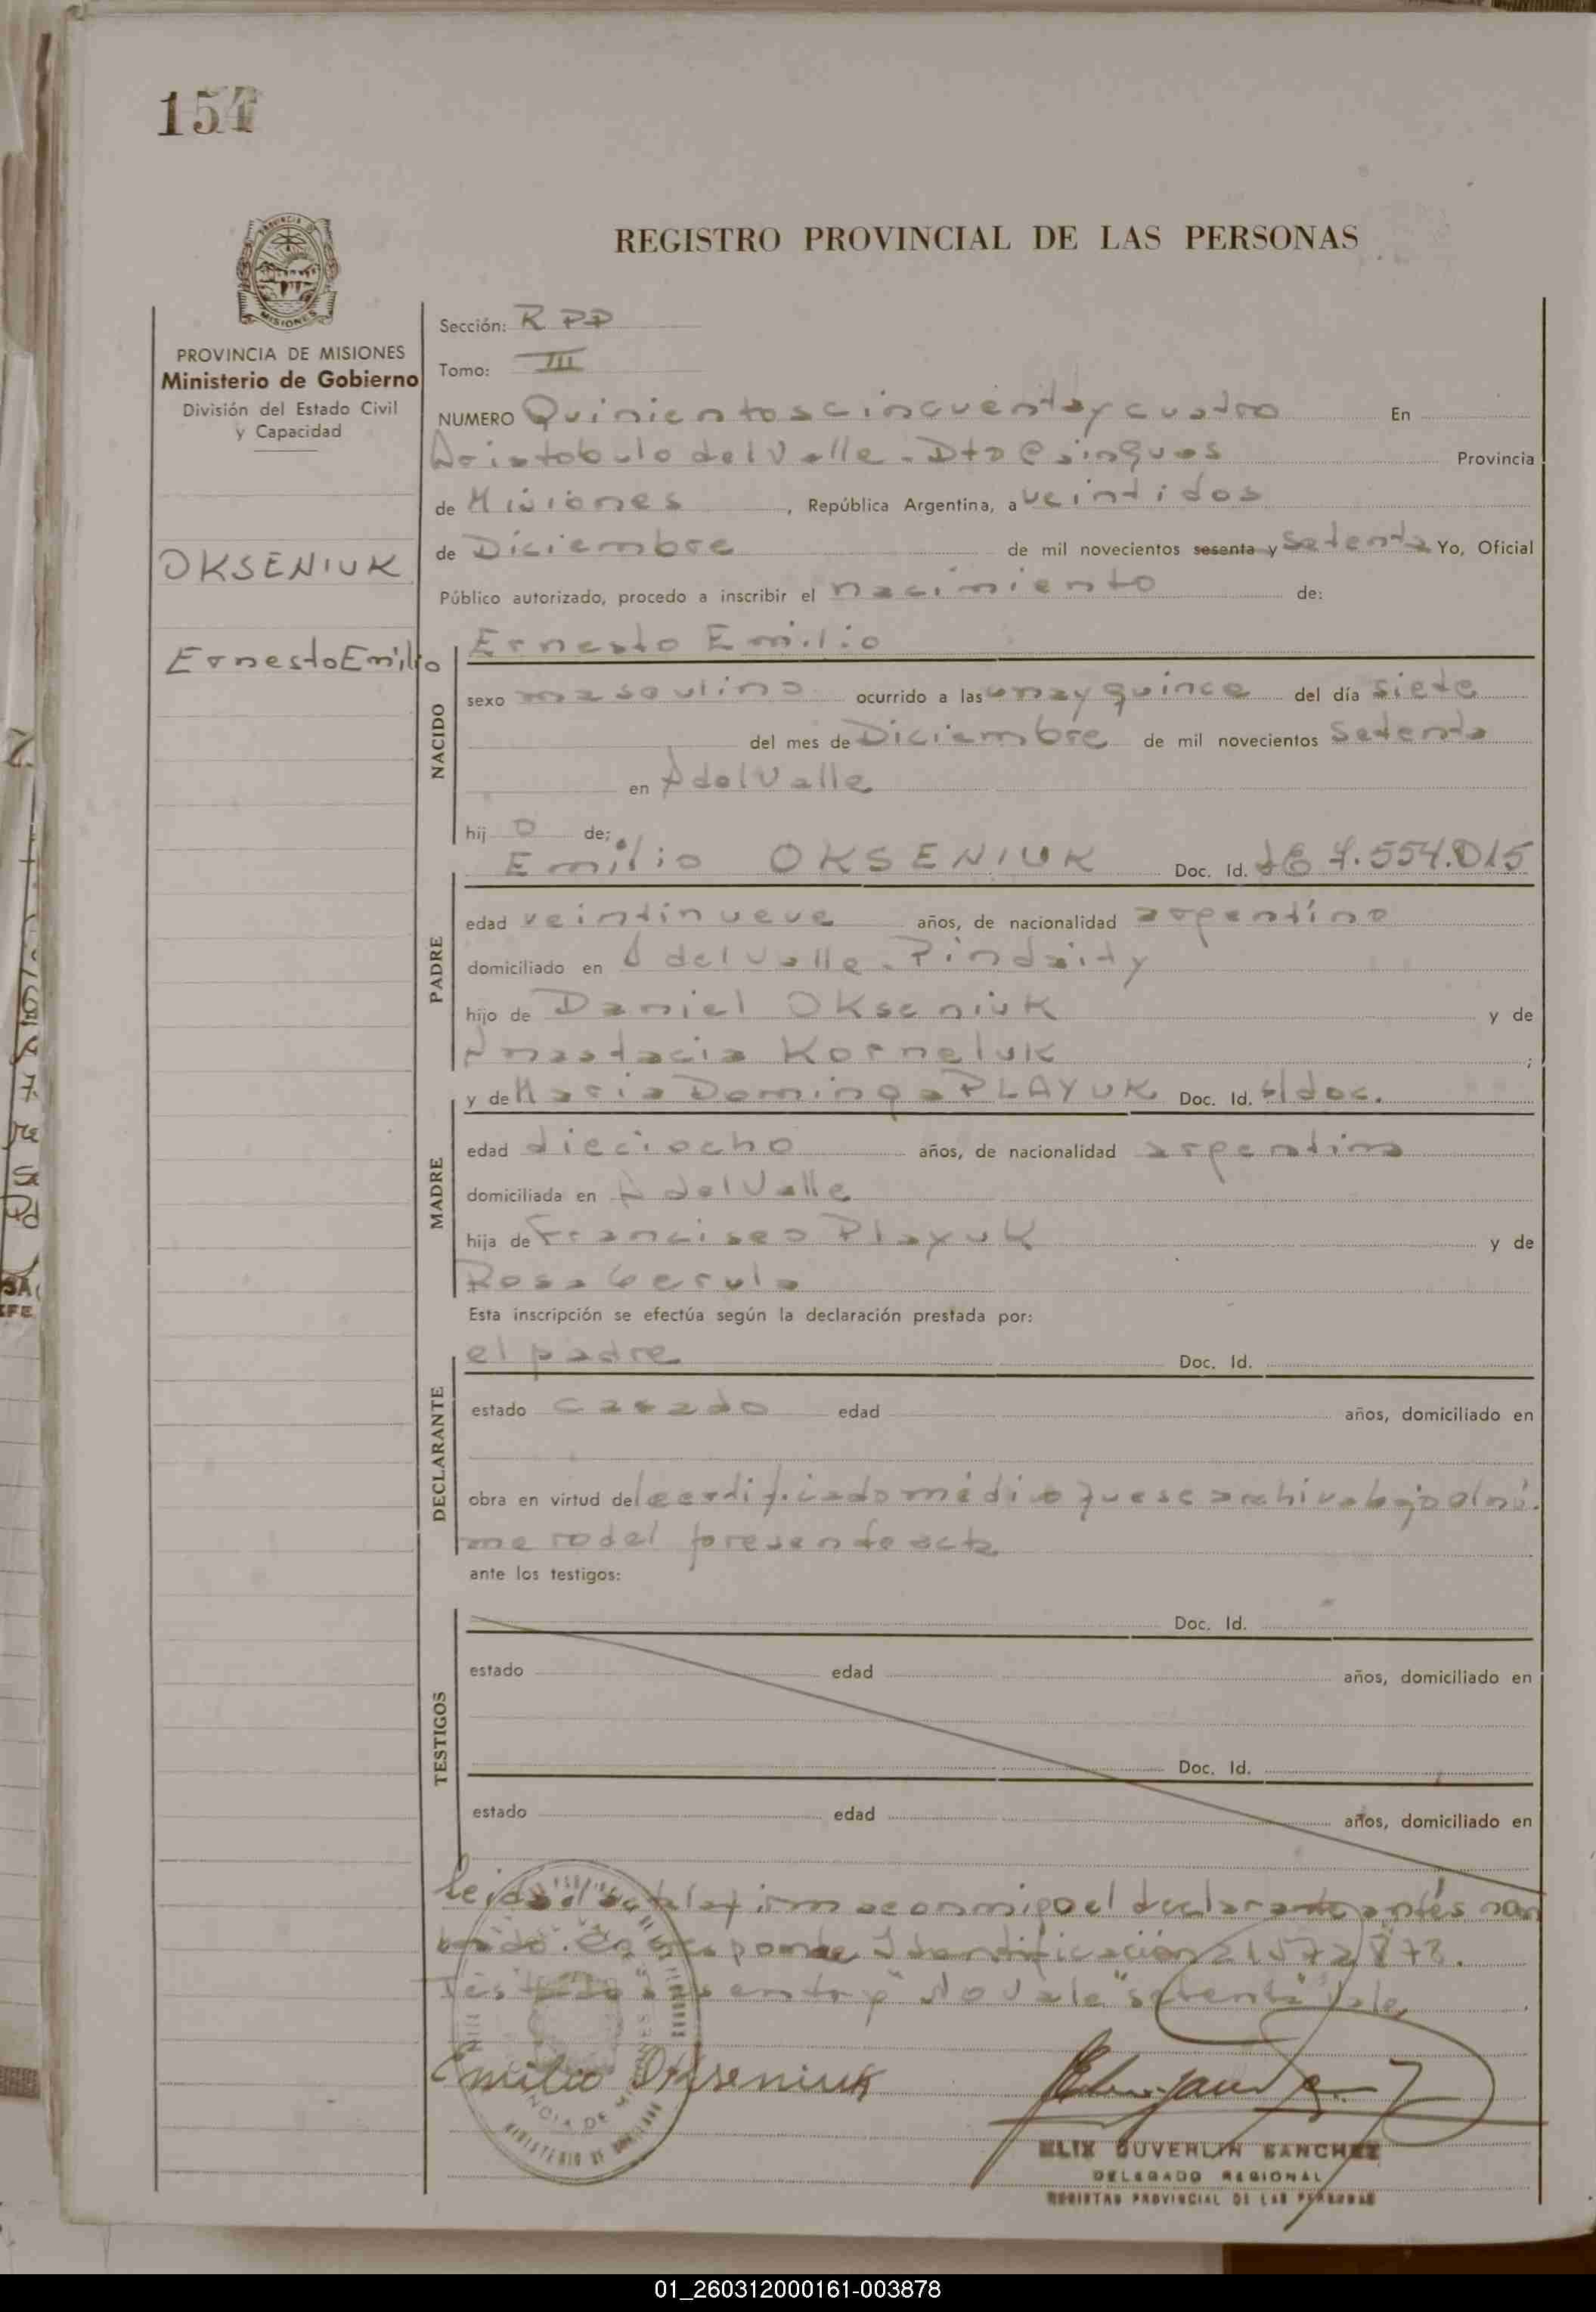 154
REGISTRO PROVINCIAL DE LAS PERSONAS
PROVINCIA DE MISIONES
Ministerio de Gobierno
División del Estado Civil
y Capacidad
OKSENIUK
Ernesto Emilio
Sección: R PP
Tomo: III
NUMERO Quinientos cincuenta y cuatro En
Aristobulo del Valle - Dto Cainguas Provincia
de Misiones, República Argentina, a veintidos
de Diciembre de mil novecientos sesenta y setenta Yo, Oficial
Público autorizado, procedo a inscribir el nacimiento de:
NACIDO
Ernesto Emilio
sexo masculino ocurrido a las una y quince del día siete
del mes de Diciembre de mil novecientos setenta
en A del Valle
hijo de:
PADRE
Emilio OKSENIUK Doc. Id. LE 7.554.015
edad veintinueve años, de nacionalidad argentino
domiciliado en A del Valle - Pindaity
hijo de Daniel Okseniuk y de
Anastacia Korneluk ;
MADRE
y de Maria Dominga PLAYUK Doc. Id. s/doc.
edad dieciocho años, de nacionalidad argentina
domiciliada en A del Valle
hija de Francisco Playuk y de
Rosa
Esta inscripción se efectúa según la declaración prestada por:
DECLARANTE
el padre Doc. Id.
estado casado edad años, domiciliado en
obra en virtud del certificado médico que se archiva bajo el nú-
mero del presente acta
ante los testigos:
TESTIGOS
Doc. Id.
estado edad años, domiciliado en
Doc. Id.
estado edad años, domiciliado en
Leida el acta la firma conmigo el declarante antes nom
brado. Corresponde Identificación
Testado "sesenta y" No vale "setenta" Vale
Emilio Okseniuk
ELIX DUVERLIN SANCHEZ
DELEGADO REGIONAL
REGISTRO PROVINCIAL DE LAS PERSONAS
01_260312000161-003878